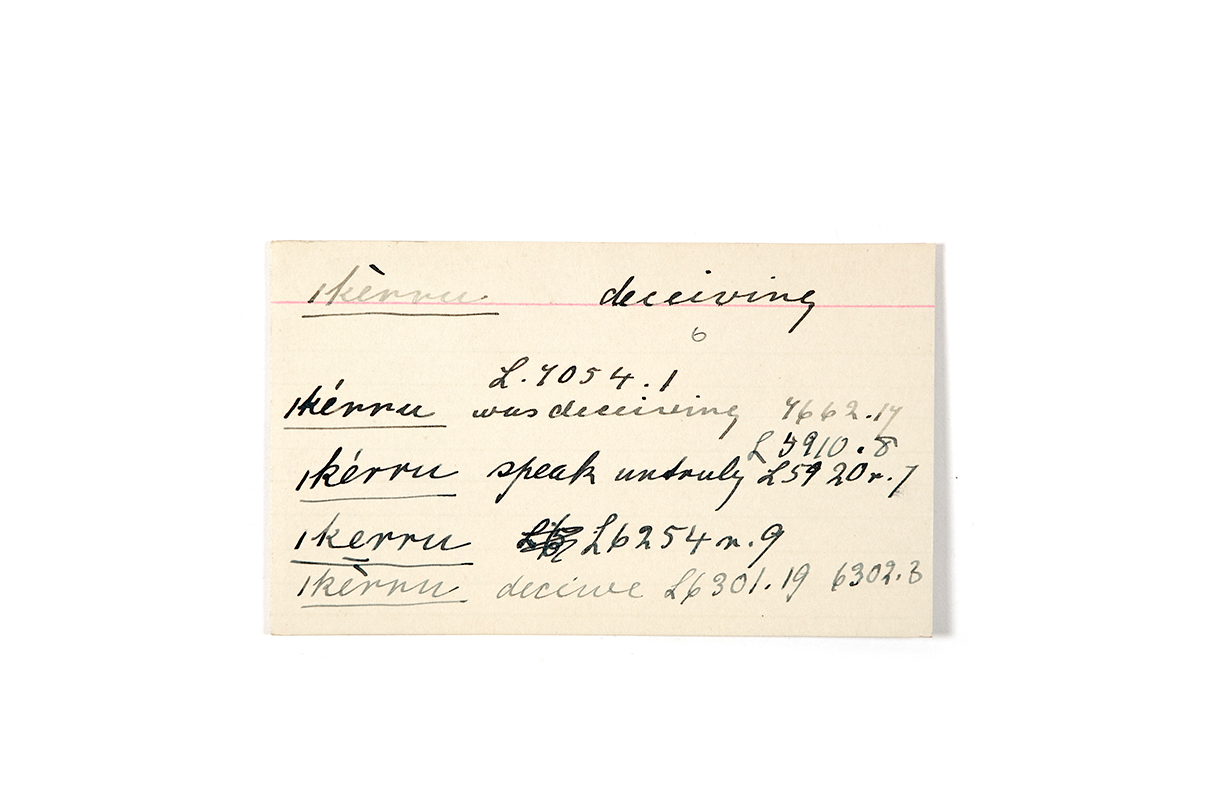 ǀkèrru deceiving
6
L.7054.1
ǀkérru was deceiving 7662.17
L 5910.8
ǀkérru speak untruly L5920r.7
ǀkerru L6254r.9
ǀkèrru deceive L6301.19 6302.3